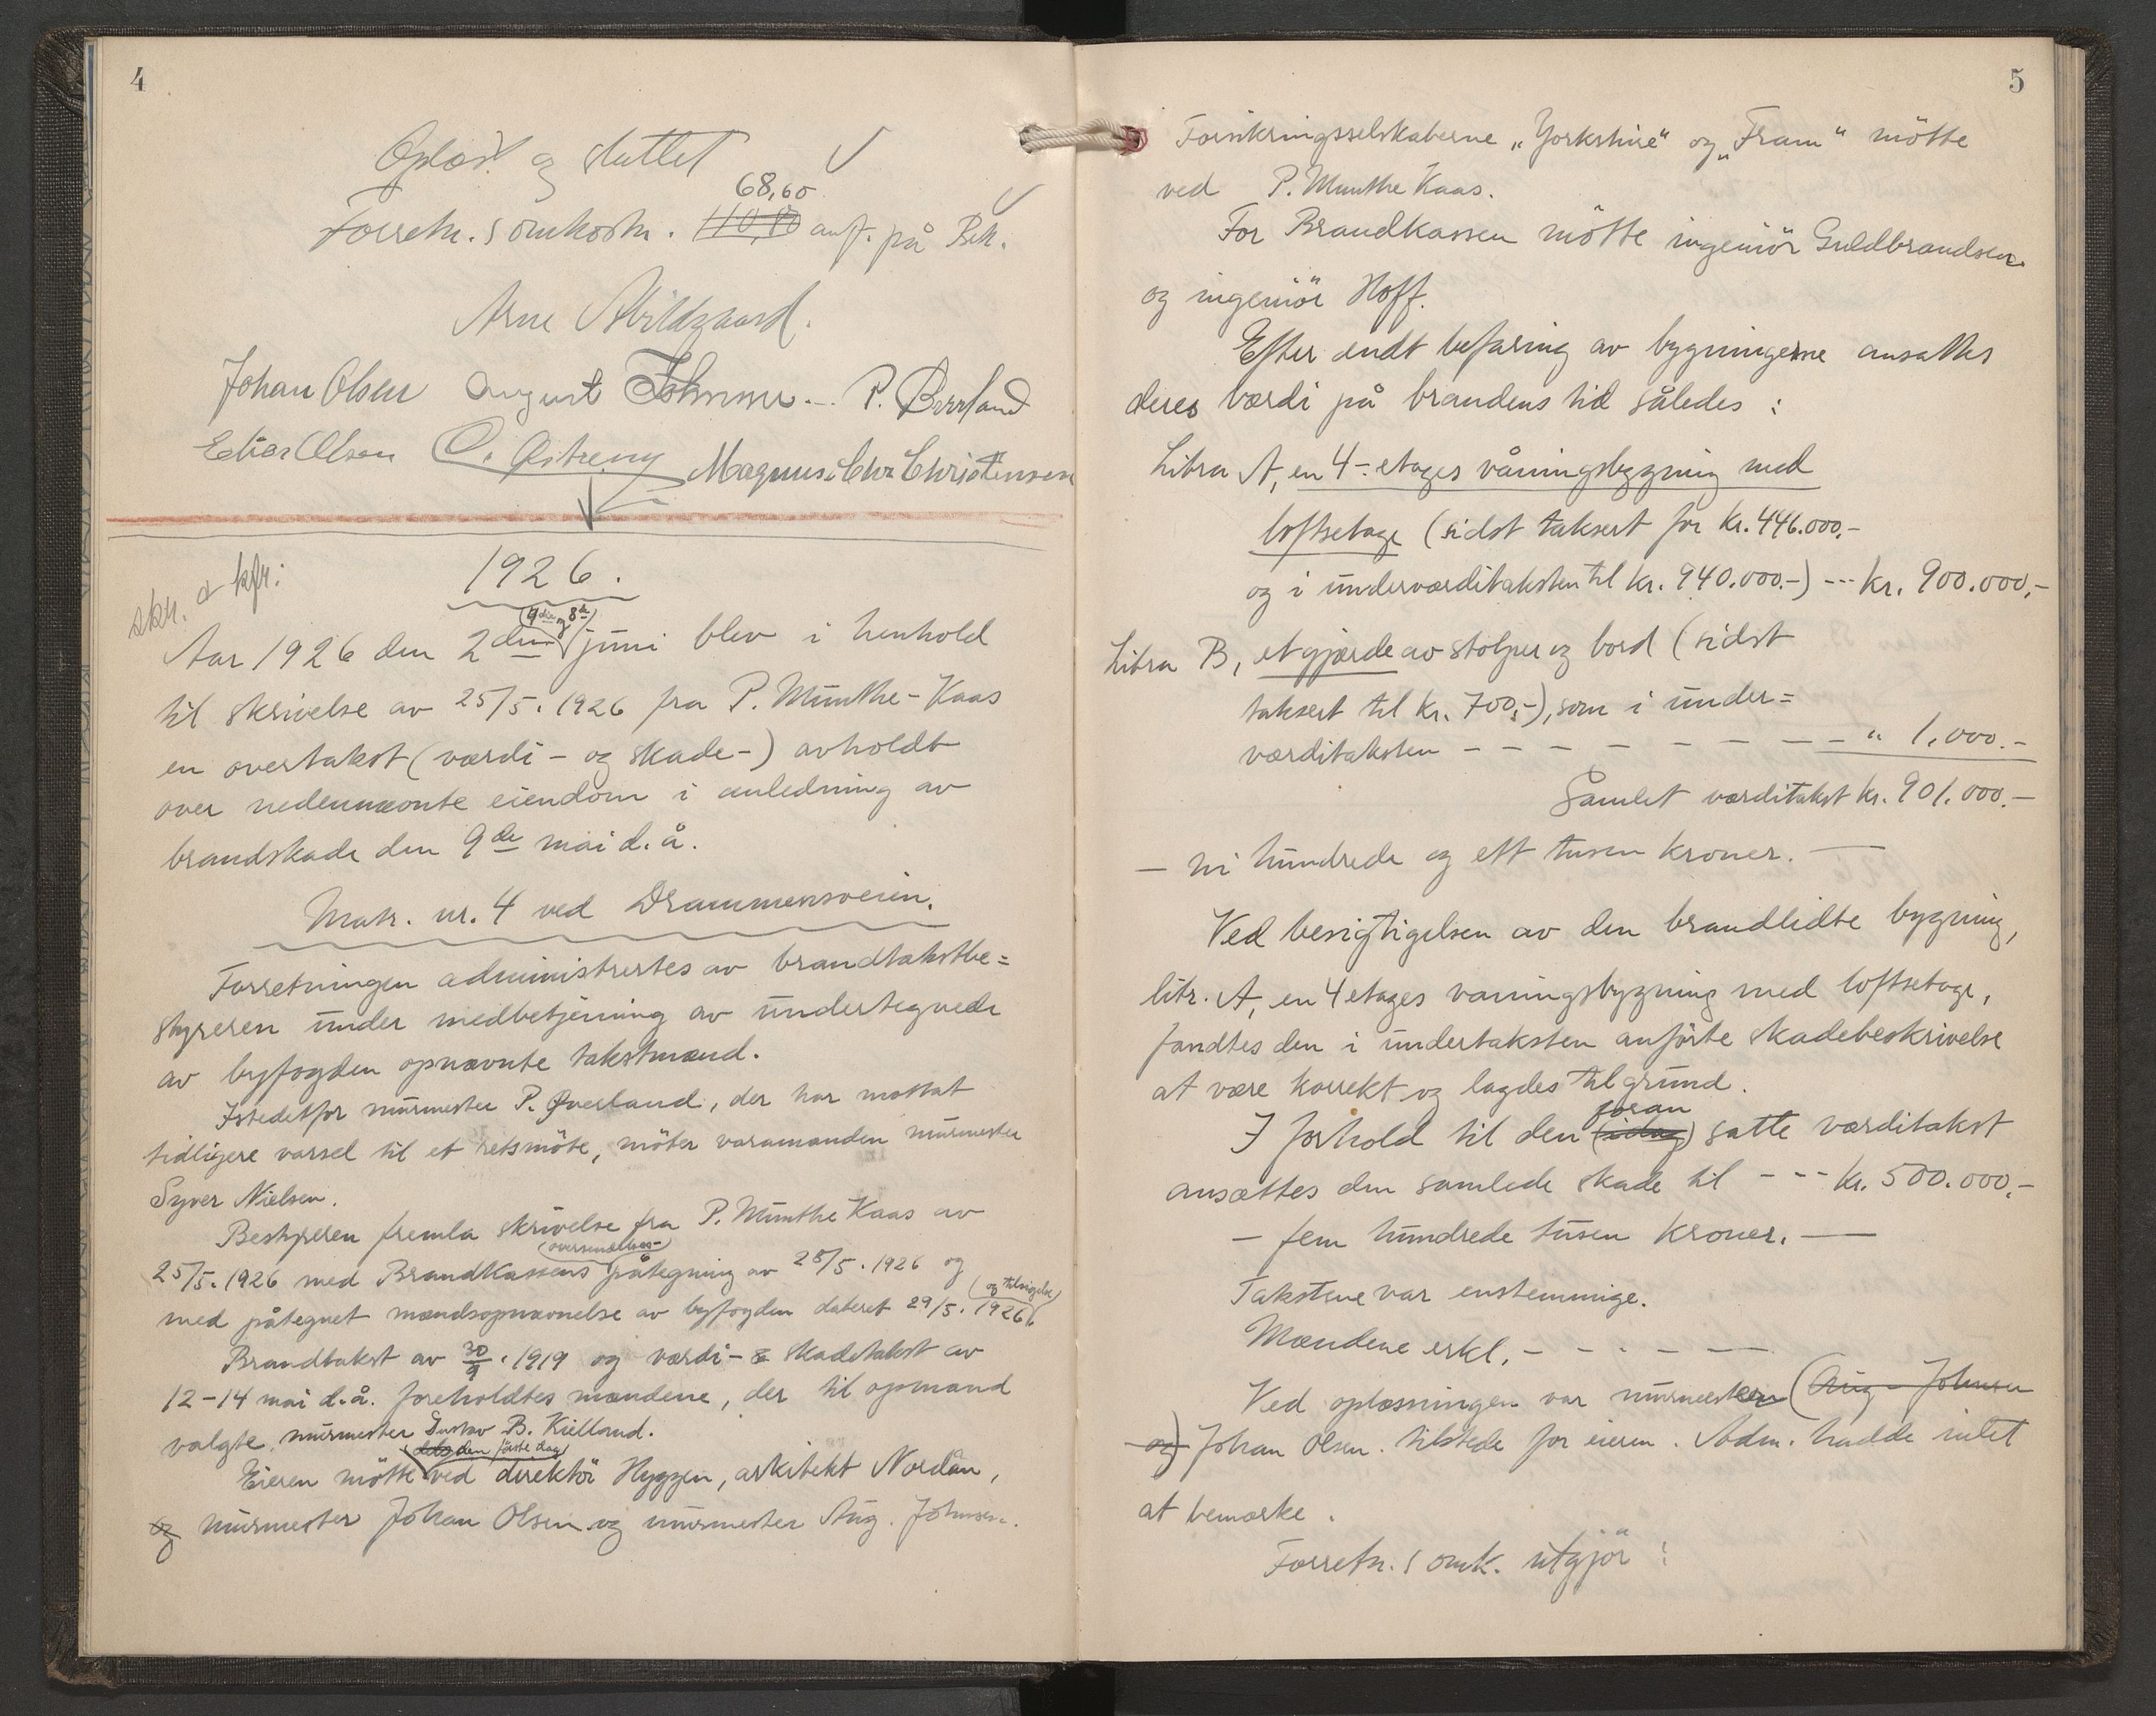 4
Oplæst og sluttet
68,60
Forretn.s omkostn. 110,80 anf. på Bek.
Arne Abildgaard.
Johan Olsen August Johnsen P. Øverland
Einar Olsen O. Østreng Magnus Chr Christensen
skr. & kfr:
1926.
(4de og 8de)
Aar 1926 den 2den juni blev i henhold
til skrivelse av 25/5. 1926 fra P. Munthe-Kaas
en overtakst (værdi- og skade-) avholdt
over nedennævnte eiendom i anledning av
brandskade den 9de mai d. å.
Matr. nr. 4 ved Drammensveien.
Forretningen administrertes av brandtakstbe=
styreren under medbetjening av undertegnede
av byfogden opnævnte takstmænd.
Istedetfor murmester P. Øverland, der har mottat
tidligere varsel til et retsmöte, möter varamanden murmester
Syver Nielsen.
Bestyreren fremla skrivelse fra P. Munthe Kaas av
(oversendelses-)
25/5. 1926 med Brandkassens påtegning av 28/5. 1926 og
(og tilsigelse)
med påtegnet mændsopnævnelse av byfogden dateret 29/5. 1926
Brandtakst av 30/9. 1919 og værdi- & skadetakst av
12-14 mai d. å. foreholdtes mændene, der til opmand
valgte murmester Gustav B. Kielland.
den förste dag
Eieren mötte ved direktör Hyggen, arkitekt Nordan,
og murmester Johan Olsen og murmester Aug. Johnsen.
5
Forsikringsselskaberne „Yorkshire“ og „Fram“ mötte
ved P. Munthe Kaas.
For Brandkassen mötte ingeniör Guldbrandsen
og ingeniör Hoff.
Efter endt befaring av bygningerne ansattes
deres værdi på brandens tid således :
Litra A, en 4-etages våningsbygning med
loftsetage (sidst taksert for kr. 446.000,-
og i underværditaksten til kr. 940.000.-) --- kr. 900.000,-
Litra B, et gjærde av stolper og bord (sidst
taksert til kr. 700,-), som i under=
værditaksten - - - - - - - - - - " 1.000.-
Samlet værditakst kr. 901.000.-
- ni hundrede og ett tusen kroner. -
Ved besigtigelsen av den brandlidte bygning,
litr. A, en 4 etages vaningsbygning med loftsetage,
fandtes den i undertaksten anförte skadebeskrivelse
at være korrekt og lagdes til grund.
foran
I forhold til den (idag) satte værditakst
ansættes den samlede skade til - - - kr. 500.000,-
- fem hundrede tusen kroner. -
Takstene var enstemmige.
Mændene erkl. - - - - - -
Ved oplæsningen var murmesteren (Aug. Johnsen
og) Johan Olsen tilstede for eieren. Adm. hadde intet
at bemærke.
Forretn.s omk. utgjör :